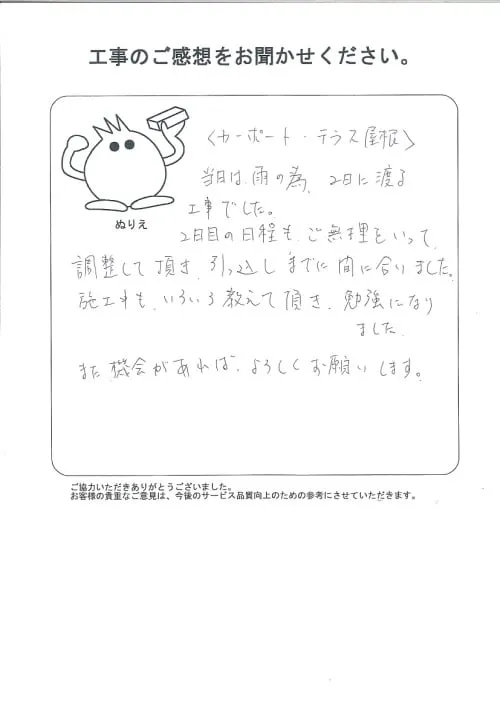 工事のご感想をお聞かせください。
〈カーポート・テラス屋根〉
当日は、雨の為、2日に渡る
工事でした。
ぬりえ
2日目の日程も、ご無理をいって、
調整して頂き、引っ込しまでに間に合いました。
施工中も、いろいろ教えて頂き、勉強になり
ました。
また機会があれば、よろしくお願いします。
ご協力いただきありがとうございました。
お客様の貴重なご意見は、今後のサービス品質向上のための参考にさせていただきます。